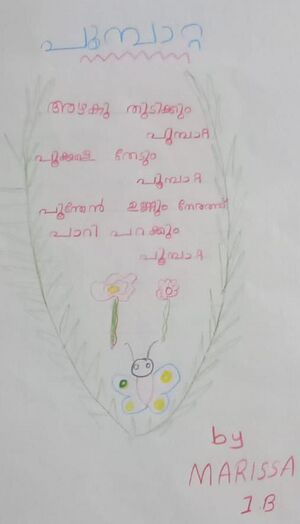 പൂമ്പാറ്റ
അഴകു തുടിക്കും
പൂമ്പാറ്റ
പൂക്കളെ തേടും
പൂമ്പാറ്റ
പൂന്തേൻ ഉണ്ണും നേരത്ത്
പാറി പറക്കും
പൂമ്പാറ്റ
by
MARISSA
1 B